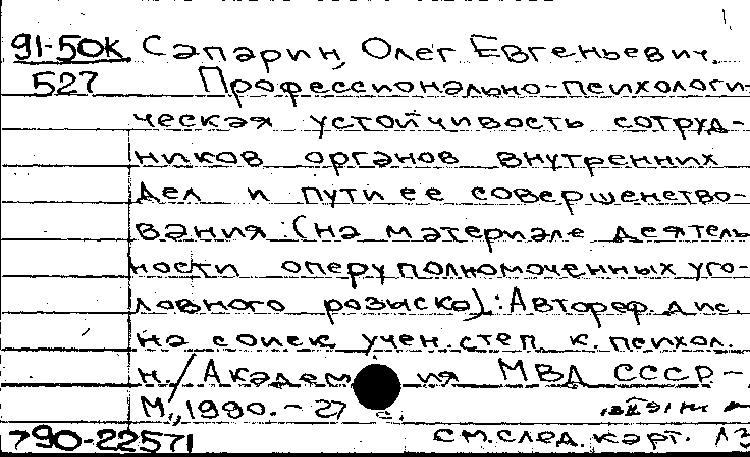 91-50к Сапарин, Олег Евгеньевич.
527 Профессионально-психологи-
ческая устойчивость сотруд-
ников органов внутренних
дел и пути ее совершенство-
вания :(на материале деятель
ности оперуполномоченных уго-
ловного розыска): Автореф. дис.
на соиск. учен. степ. к. психол.
н. / Академия МВД СССР -
М., 1990. - 27 с.
790-22571 см. след. карт. ЛЗ